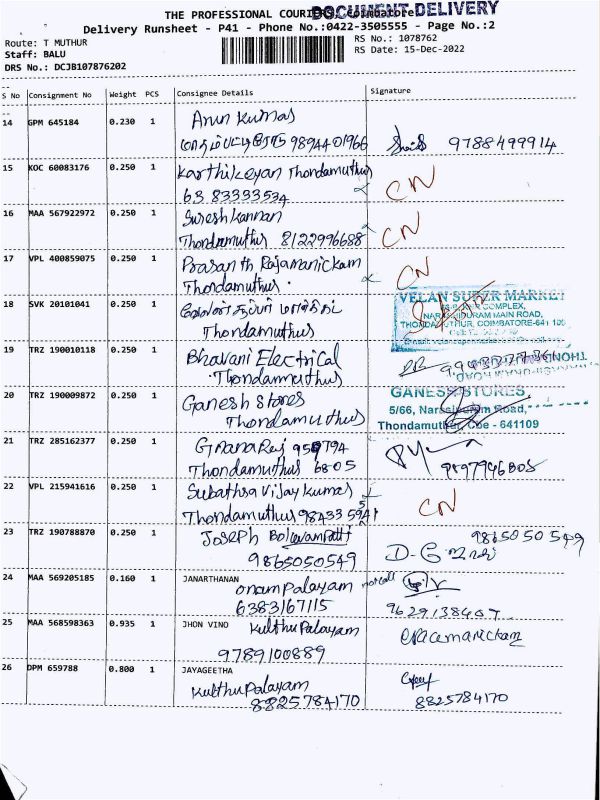 DOCUMENT DELIVERY
THE PROFESSIONAL COURIERS, Coimbatore
Delivery Runsheet - P41 - Phone No.:0422-3505555 - Page No.:2
Route: T MUTHUR
RS No.: 1078762
Staff: BALU
RS Date: 15-Dec-2022
DRS No.: DCJB107876202
S No Consignment No Weight PCS Consignee Details Signature
14 GPM 645184 0.230 1 Arun Kumar
9894401966 9788499914
15 KOC 60083176 0.250 1 Karthikeyan Thondamuthur
63 83333534 CN
16 MAA 567922972 0.250 1 Suresh Kannan
Thondamuthur 8122996688 CN
17 VPL 400859075 0.250 1 Prasanth Rajamanickam
Thondamuthur CN
18 SVK 20101041 0.250 1
Thondamuthur
VELAN SUPER MARKET
COMPLEX,
NARASIPURAM MAIN ROAD,
THONDAMUTHUR, COIMBATORE-641 109
19 TRZ 190010118 0.250 1 Bhavani Electrical
Thondamuthur
20 TRZ 190009872 0.250 1 Ganesh Stores
Thondamuthur
GANESH STORES,
5/66, Narasipuram Road,
Thondamuthur, Cbe - 641109
21 TRZ 285162377 0.250 1 GnanaRaj 959794
Thondamuthur 6805 9597946805
22 VPL 215941616 0.250 1 Subathra Vijay Kumar
Thondamuthur CN
23 TRZ 190788870 0.250 1 Joseph Boluvampatti 9865050549
9865050549
24 MAA 569205185 0.160 1 JANARTHANAN
onampalayam not call
6383167115 9629138407
25 MAA 568598363 0.935 1 JHON VINO Kulthupalayam
9789100889
26 DPM 659788 0.800 1 JAYAGEETHA
Kulthupalayam
8825784170 8825784170